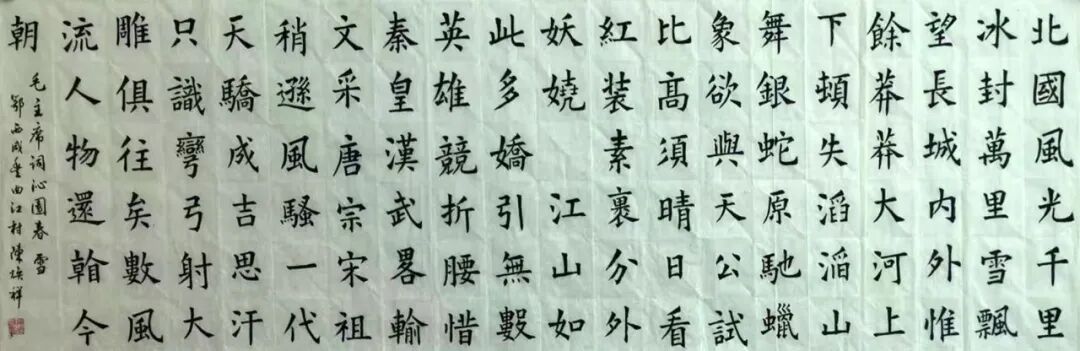 北國風光千里
冰封萬里雪飄
望長城内外惟
餘莽莽大河上
下頓失滔滔山
舞銀蛇原馳蠟
象欲與天公試
比高須晴日看
紅裝素裹分外
妖嬈 江山如
此多嬌引無數
英雄競折腰惜
秦皇漢武畧輸
文采唐宗宋祖
稍遜風騷一代
天驕成吉思汗
只識彎弓射大
雕俱往矣數風
流人物還看今
朝
毛主席詞沁園春雪
鄂西咸豐曲江村陳煥祥